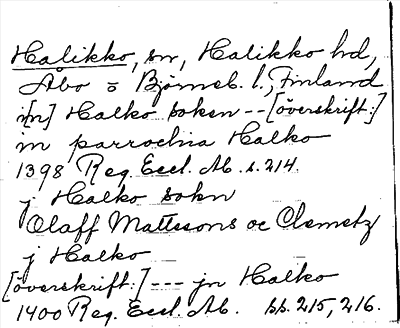 Halikko, sn, Halikko hd,
Åbo o Björneb. l., Finland
i[n] Halko soken -- [överskrift:]
in parrochia Halko
1398 Reg. Eccl. Ab. s. 214.
j Halko sokn
Olaff Mattssons oc Clemetz
j Halko
[överskrift:] --- jn Halko
1400 Reg. Eccl. Ab. ss. 215, 216.